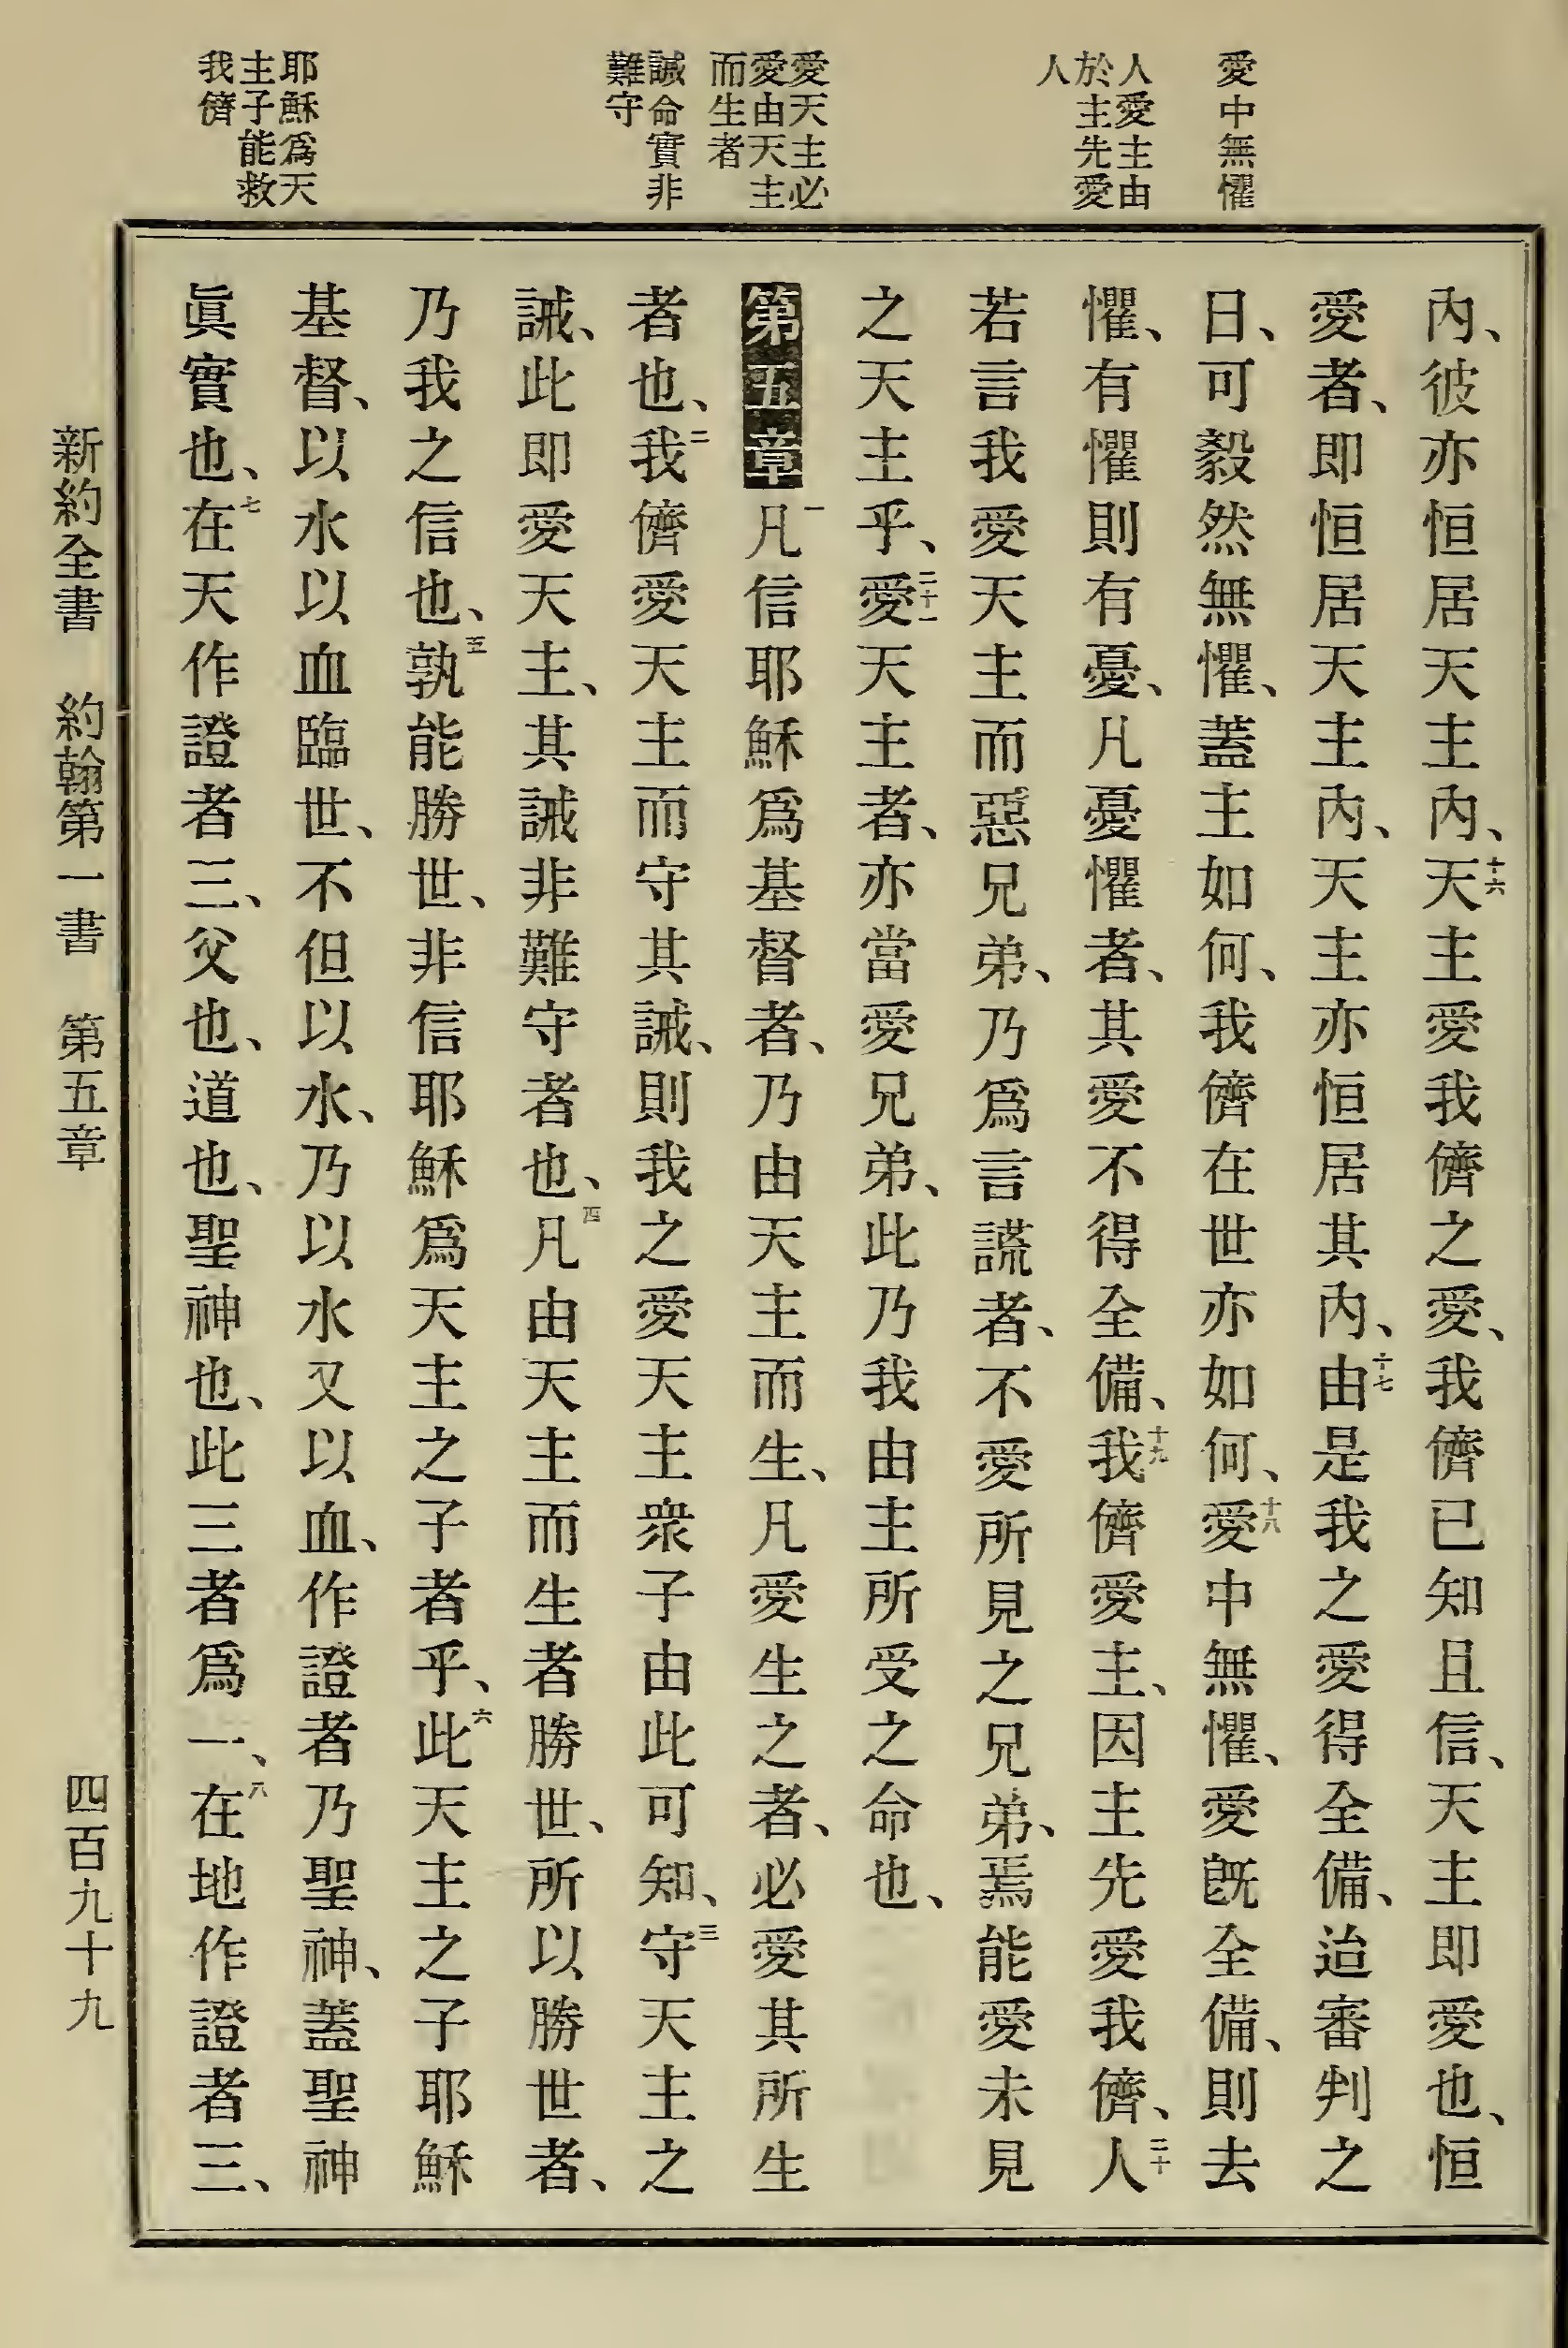 愛中無懼
人愛主由
於主先愛
人
愛天主必
愛由天主
而生者
誡命實非
難守
耶穌爲天
主子能救
我儕
內、彼亦恒居天主內、十六天主愛我儕之愛、我儕已知且信、天主即愛也、恒
愛者、即恒居天主內、天主亦恒居其內、十七由是我之愛得全備、迨審判之
日、可毅然無懼、蓋主如何、我儕在世亦如何、十八愛中無懼、愛既全備、則去
懼、有懼則有憂、凡憂懼者、其愛不得全備、十九我儕愛主、因主先愛我儕、二十人
若言我愛天主而惡兄弟、乃爲言謊者、不愛所見之兄弟、焉能愛未見
之天主乎、二十一愛天主者、亦當愛兄弟、此乃我由主所受之命也、
第五章 一凡信耶穌爲基督者、乃由天主而生、凡愛生之者、必愛其所生
者也、二我儕愛天主而守其誡、則我之愛天主衆子由此可知、三守天主之
誡、此即愛天主、其誡非難守者也、四凡由天主而生者勝世、所以勝世者、
乃我之信也、五孰能勝世、非信耶穌爲天主之子者乎、六此天主之子耶穌
基督、以水以血臨世、不但以水、乃以水又以血、作證者乃聖神、蓋聖神
眞實也、七在天作證者三、父也、道也、聖神也、此三者爲一、八在地作證者三、
新約全書 約翰第一書 第五章 四百九十九